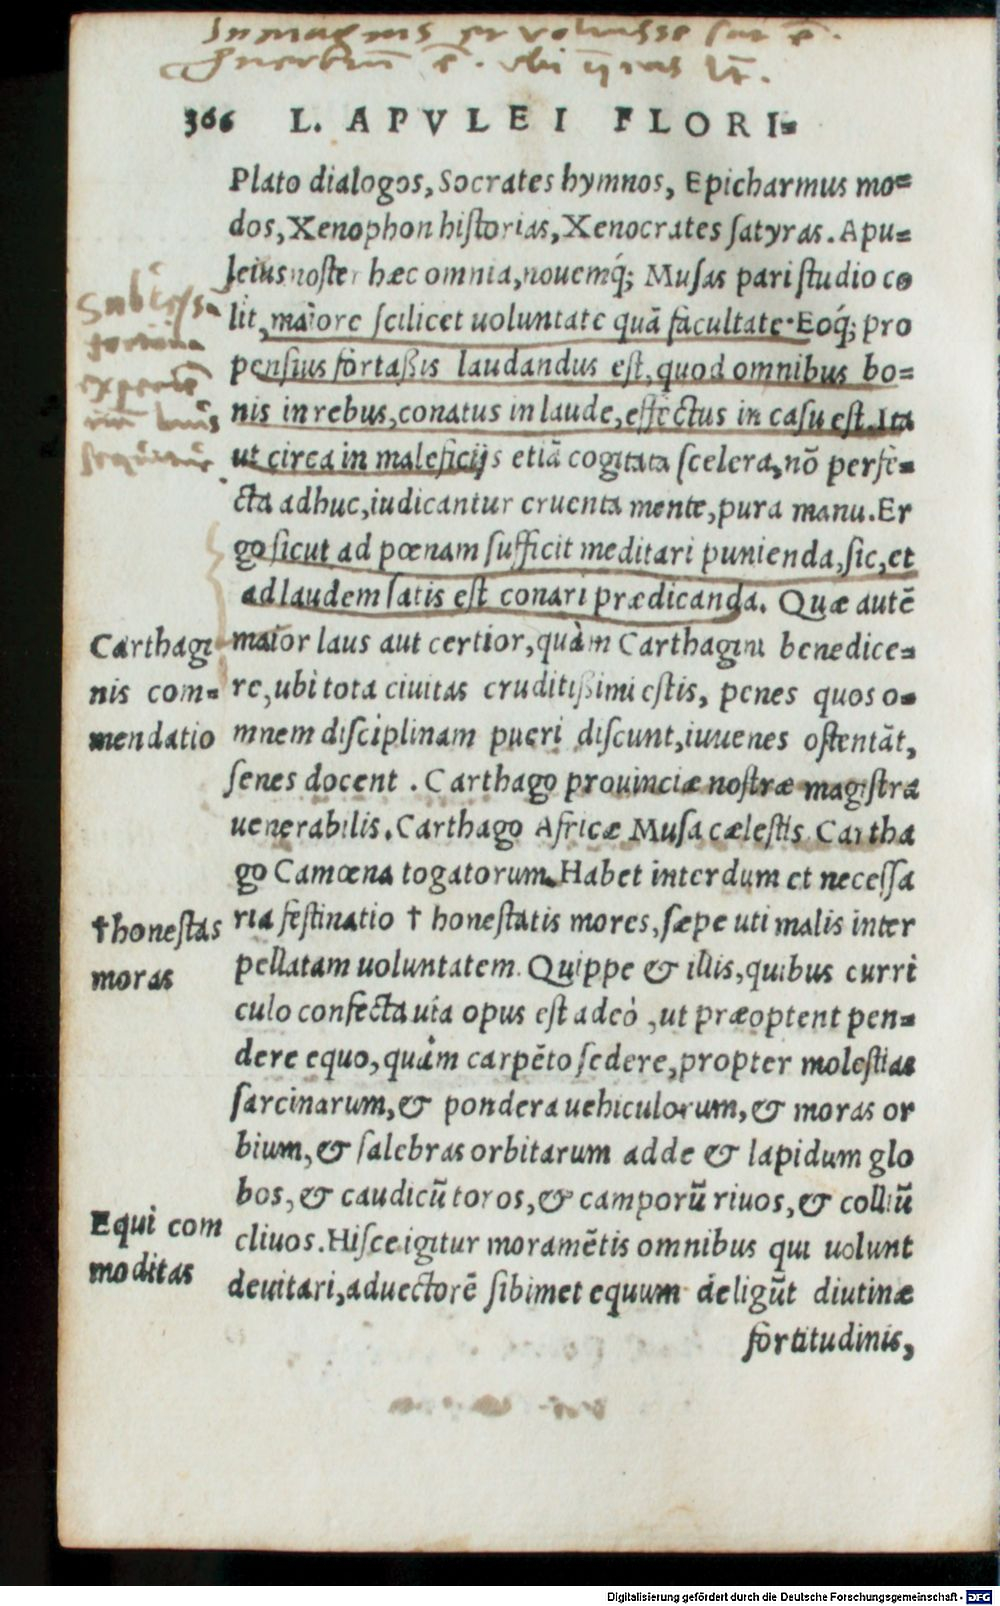 In magnis et voluisse sat ē.
366 L. APVLEI FLORI=
Plato dialogos, Socrates hymnos, Epicharmus mo=
dos, Xenophon historias, Xenocrates satyras. Apu=
leius noster hæc omnia, nouemq́; Musas pari studio co
lit, maiore scilicet uoluntate quā facultate. Eoq́; pro
pensius fortaßis laudandus est, quod omnibus bo=
nis in rebus, conatus in laude, effectus in casu est. Ita
ut circa in maleficijs etiā cogitata scelera, nō perfe=
cta adhuc, iudicantur cruenta mente, pura manu. Er
go sicut ad pœnam sufficit meditari punienda, sic, et
ad laudem satis est conari prædicanda. Quæ autē
maior laus aut certior, quàm Carthagini benedice=
re, ubi tota ciuitas eruditißimi estis, penes quos o=
mnem disciplinam pueri discunt, iuuenes ostentāt,
senes docent. Carthago prouinciæ nostræ magistra
uenerabilis. Carthago Africæ Musa cælestis. Cartha
go Camœna togatorum. Habet interdum et necessa
ria festinatio † honestatis mores, sæpe uti malis inter
pellatam uoluntatem. Quippe & illis, quibus curri
culo confecta uia opus est adeò, ut præoptent pen=
dere equo, quàm carpēto sedere, propter molestias
sarcinarum, & pondera uehiculorum, & moras or
bium, & salebras orbitarum adde & lapidum glo
bos, & caudicū toros, & camporū riuos, & colliū
cliuos. Hisce igitur moramētis omnibus qui uolunt
deuitari, aduectorē sibimet equum deligūt diutinæ
fortitudinis,
Carthagi
nis com=
mendatio
†honestas
moras
Equi com
moditas
Digitalisierung gefördert durch die Deutsche Forschungsgemeinschaft - DFG